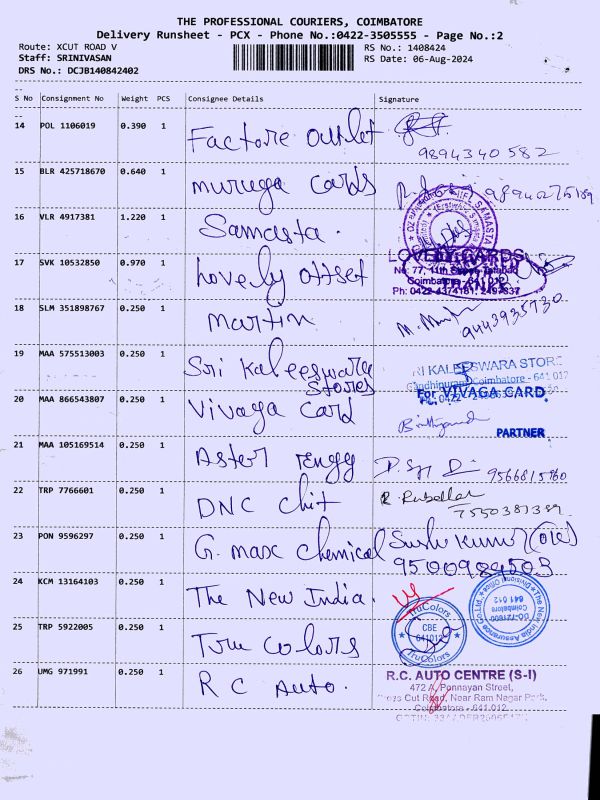 THE PROFESSIONAL COURIERS, COIMBATORE
Delivery Runsheet - PCX - Phone No.:0422-3505555 - Page No.:2
Route: XCUT ROAD V RS No.: 1408424
Staff: SRINIVASAN RS Date: 06-Aug-2024
DRS No.: DCJB140842402
S No Consignment No Weight PCS Consignee Details Signature
14 POL 1106019 0.390 1 Factore outlet
9894340582
15 BLR 425718670 0.640 1 muruga cards
16 VLR 4917381 1.220 1 Samasta.
SAMASTA
LOVELY CARDS
17 SVK 10532850 0.970 1 Lovely offset
No: 77, 11th
Coimbatore - 641 012
Ph: 0422-4374181, 2497837
18 SLM 351898767 0.250 1 martin 9443935730
19 MAA 575513003 0.250 1 Sri Kaleeswara Stores
RI KALEESWARA STORE
Gandhipuram, Coimbatore - 641 012
20 MAA 866543807 0.250 1 Vivaga Card
For VIVAGA CARD
PARTNER
21 MAA 105169514 0.250 1 Aster
22 TRP 7766601 0.250 1 DNC chit
7550381389
23 PON 9596297 0.250 1 G. max chemical
9500984503
24 KCM 13164103 0.250 1 The New India.
The New India Assurance Co.Ltd.,
Coimbatore
641 012
25 TRP 5922005 0.250 1 Tru colors
TruColors
CBE
641012
TruColors
26 UMG 971991 0.250 1 R C Auto.
R.C. AUTO CENTRE (S-I)
472 A, Ponnayan Street,
Cut Road, Near Ram Nagar Park,
Coimbatore - 641 012